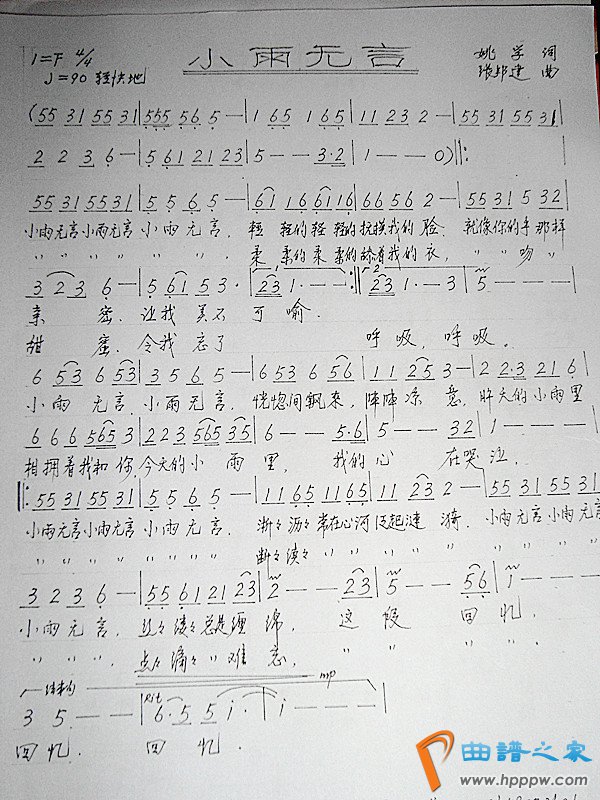 小雨无言
1=F 4/4
♩=90 轻快地
姚学 词
张邦建 曲
(55 31 55 31 | 555 56 5 — | 1 65 1 65 | 11 23 2 — | 55 31 55 31 |
2 2 3 6 — | 5 61 21 23 | 5 — — 3·2 | 1 — — 0) ‖:
55 31 55 31 | 5 5 6 5 — | 61 16 61 16 | 66 56 2 — | 55 31 5 32 |
小雨无言小雨无言 小雨无言, 轻轻的轻轻的抚摸我的脸, 就像你的手那样
〃 〃 〃 〃 〃 〃, 柔柔的柔柔的 着我的衣, 〃 〃 吻 〃
3 2 3 6 — | 5 61 53 3· | 23 1 — :‖ 23 1 — 3 | 5 — — — |
亲 密. 让我美不可喻.
甜 蜜. 令我忘了 呼吸, 呼吸.
6 53 6 53 | 3 5 6 5 — | 6 53 6 56 | 11 2 53 — | 2 2·3 21 6 |
小雨无言, 小雨无言, 恍惚间飘来, 阵阵凉意, 昨天的小雨里
6 6 6 565 3 | 2 2 3 565 35 | 6 — — 5·6 | 5 — — 32 | 1 — — — |
相拥着我和你, 今天的小雨里, 我的心在哭泣.
‖: 55 31 55 31 | 5 5 6 5 — | 11 65 11 65 | 11 23 2 — | 55 31 55 31 |
小雨无言小雨无言 小雨无言, 淅々沥々常在心河泛起涟漪. 小雨无言小雨无言
〃 〃 〃 〃 〃 〃 〃 断々续々 〃 〃 〃 〃 〃 〃 〃
3 2 3 6 — | 55 61 21 23 | 2 — — 23 | 5 — — 56 | 1 — — — |
小雨无言, 总是缠绵, 这段回忆,
〃 〃, 点々滴々〃难忘, 〃 〃 〃 〃.
结束句 Rit mp
3 5 — — | 6· 5 5 i· | i — — — ‖
回忆. 回忆.
曲谱之家
www.hpppw.com